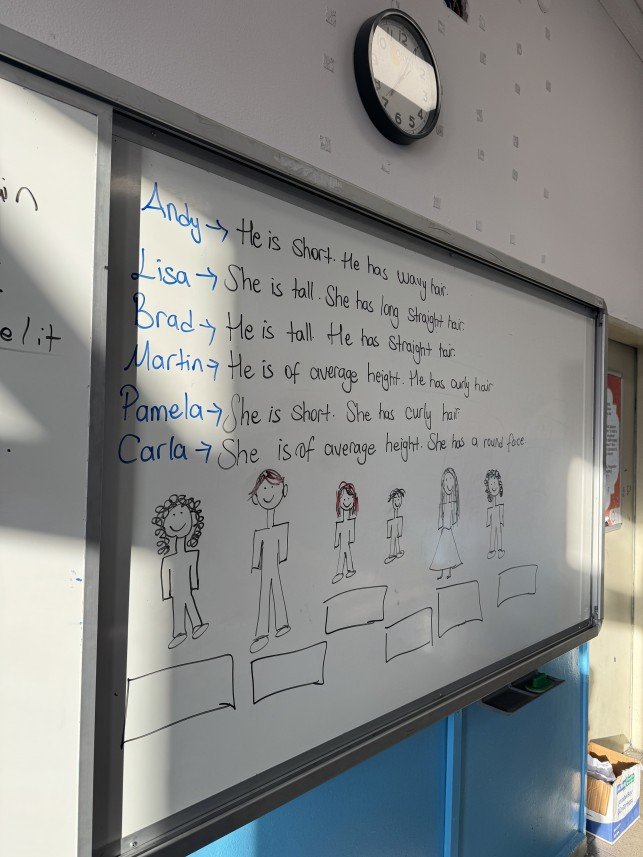 Andy → He is short. He has wavy hair.
Lisa → She is tall. She has long straight hair.
Brad → He is tall. He has straight hair.
Martin → He is of average height. He has curly hair
Pamela → She is short. She has curly hair
Carla → She is of average height. She has a round face
elit
12
7 6 5